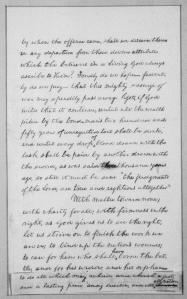 by whom the offence came, shall we discern there-
in any departure from those divine attributes
which the believers in a living God always
ascribe to Him? Fondly do we hope— fervently
do we pray— that this mighty scourge of
war may speedily pass away. Yet, if God
wills that it continue, until all the wealth
piled by the bond-man's two hundred and
fifty years of unrequited toil shall be sunk,
and until every drop of blood drawn with the
lash, shall be paid by another drawn with
the sword, as was said three thousand years
ago, so still it must be said "the judgments
of the Lord, are true and righteous altogether"
With malice toward none;
with charity for all; with firmness in the
right, as God gives us to see the right,
let us strive on to finish the work we
are in; to bind up the nation's wounds;
to care for him who shall have borne the bat-
tle, and for his widow, and his orphan—
to do all which may achieve and cherish a just
and a lasting peace, among ourselves, and with all nations.